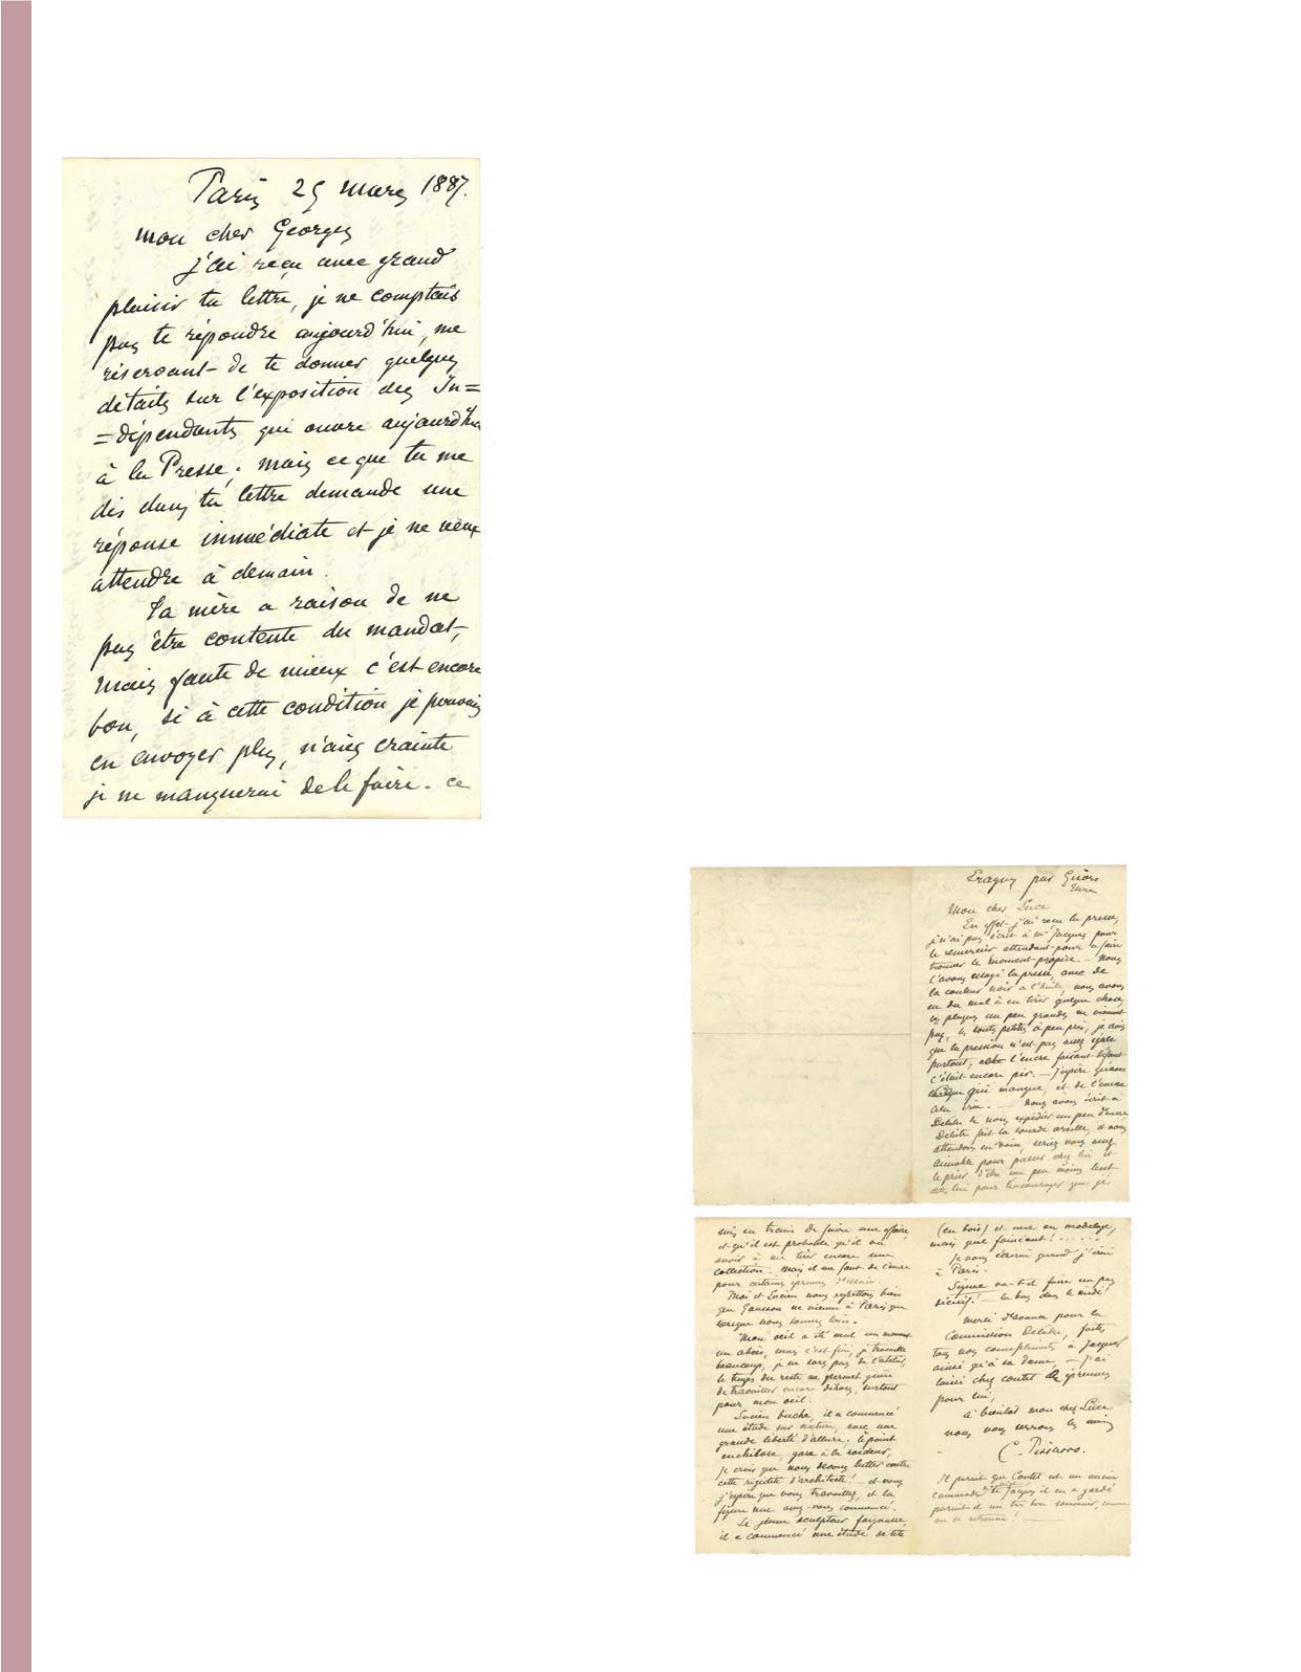 Paris 25 mars 1887.
mon cher Georges
J'ai reçu avec grand
plaisir ta lettre, je ne comptais
pas te répondre aujourd'hui, me
réservant de te donner quelques
détails sur l'exposition des In=
=dépendants qui ouvre aujourd'hui
à la Presse. mais ce que tu me
dis dans ta lettre demande une
réponse immédiate et je ne veux
attendre à demain.
Ta mère a raison de ne
pas être contente du mandat,
mais faute de mieux c'est encore
bon, si à cette condition je pouvais
en envoyer plus, n'aies crainte
je ne manquerai de le faire. ce
Eragny par Gisors
Eure
Mon cher Luce
En effet j'ai reçu la presse,
je n'ai pas écrit à Mr Jacques pour
le remercier attendant pour
trouver le moment propice. — Nous
l'avons essayé la presse, avec de
la couleur noir à l'huile, nous avons
eu du mal à en tirer quelque chose,
les plaques un peu grandes ne viennent
pas, les toutes petites à peu près, je crois
que la pression n'est pas assez égale
partout, l'encre faisant défaut
c'était encore pis. — J'espère
qui manque, et de l'encre
cela ira. — Nous avons écrit à
Delâtre de nous expédier un peu d'encre
Delâtre fait la sourde oreille, et nous
attendons en vain, seriez vous assez
aimable pour passer chez lui et
le prier d'être un peu moins lent
lui pour l'encourager que je
suis en train de faire une affaire,
et qu'il est probable qu'il va
avoir à me tirer encore une
collection. mais il me faut de l'encre
pour certaines épreuves d'essain.
Moi et Lucien nous regrettons bien
que Gausson ne vienne à Paris que
lorsque nous sommes loin.
Mon oeil a été mal
un abcès, mais c'est fini, je travaille
beaucoup, je ne sors pas de l'atelier,
le temps du reste ne permet guère
de travailler encore dehors, surtout
pour mon oeil.
Lucien bûche, il a commencé
une étude sur nature, avec une
grande liberté d'allure; le point
gare à la raideur,
je crois que nous devons lutter contre
cette rigidité d'architecte! — et vous
j'espère que vous travaillez, et la
figure nue avez-vous commencé.
Le jeune sculpteur
il a commencé une étude de tête
(en bois) et une en modelage,
mais quel fainéant! ......
Je vous écrirai quand j'irai
à Paris.
Signac va-t-il faire un pas
décisif! — là bas dans le midi!
Merci d'avance pour la
Commission Delâtre, faites
tous nos compliments à Jacques
ainsi qu'à sa dame, — J'ai
laissé chez Contet épreuves
pour lui,
à bientôt mon cher Luce
nous vous serrons les mains
C. Pissarro.
Il paraît que Contet est un ancien
camarade de Jacques il en a gardé
paraît il un très bon souvenir, comme
on se retrouve! —